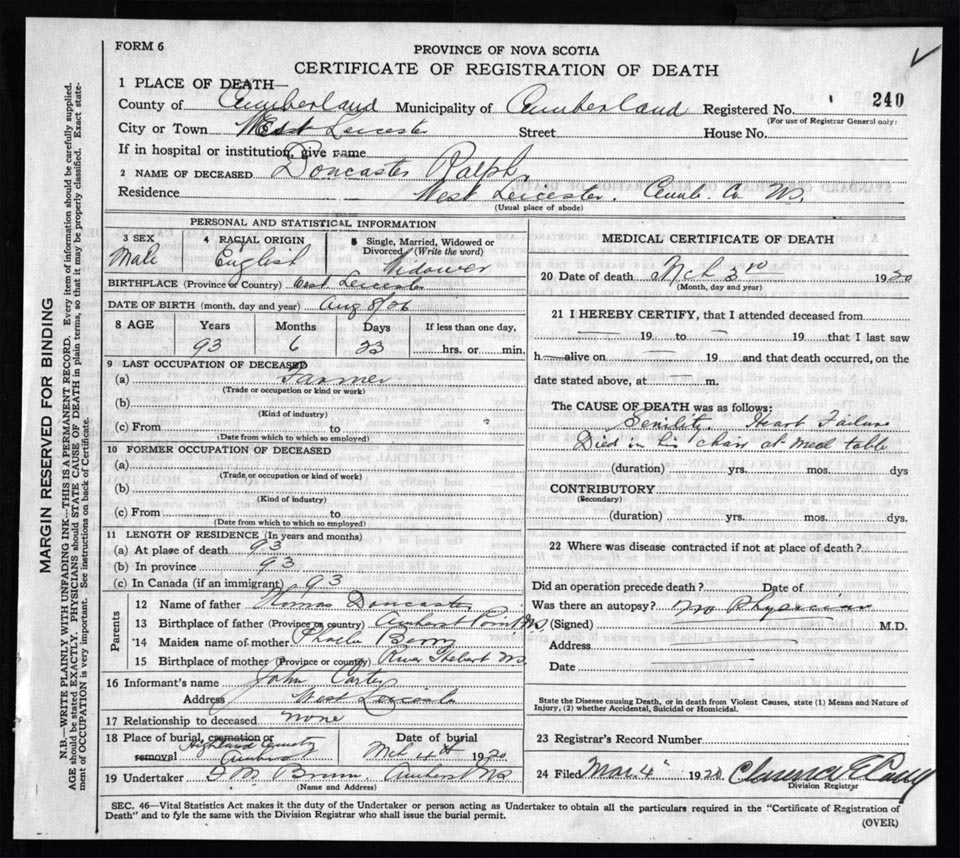 FORM 6
PROVINCE OF NOVA SCOTIA
CERTIFICATE OF REGISTRATION OF DEATH
1 PLACE OF DEATH—
County of Cumberland Municipality of Cumberland Registered No. 240
(For use of Registrar General only)
City or Town West Leicester Street House No.
If in hospital or institution, give name
2 NAME OF DECEASED Doncaster Ralph
Residence West Leicester. Cumb. Co NS.
(Usual place of abode)
PERSONAL AND STATISTICAL INFORMATION
3 SEX
Male
4 RACIAL ORIGIN
English
5 Single, Married, Widowed or Divorced (Write the word)
Widower
BIRTHPLACE (Province or Country) West Leicester
DATE OF BIRTH (month, day and year) Aug 8/26
8 AGE Years Months Days If less than one day,
93 6 23 hrs. or min.
9 LAST OCCUPATION OF DECEASED
(a) Farmer
(Trade or occupation or kind of work)
(b)
(Kind of industry)
(c) From to
(Date from which to which so employed)
10 FORMER OCCUPATION OF DECEASED
(a)
(Trade or occupation or kind of work)
(b)
(Kind of industry)
(c) From to
(Date from which to which so employed)
11 LENGTH OF RESIDENCE (In years and months)
(a) At place of death 93
(b) In province 93
(c) In Canada (if an immigrant) 93
Parents
12 Name of father Thomas Doncaster
13 Birthplace of father (Province or country) Amherst Point NS
14 Maiden name of mother Phoebe
15 Birthplace of mother (Province or country) River Hebert NS.
16 Informant's name John Carter
Address West Leicester
17 Relationship to deceased none
18 Place of burial, cremation or removal Highland Cemetery
Date of burial
Mch 4th 1920
19 Undertaker Amherst NS
(Name and Address)
MEDICAL CERTIFICATE OF DEATH
20 Date of death Mch 3rd 1920
(Month, day and year)
21 I HEREBY CERTIFY, that I attended deceased from
19 to 19 that I last saw
h alive on 19 and that death occurred, on the
date stated above, at m.
The CAUSE OF DEATH was as follows:
Senility. Heart Failure
Died in his chair at meal table
(duration) yrs. mos. dys
CONTRIBUTORY
(Secondary)
(duration) yrs. mos. dys.
22 Where was disease contracted if not at place of death?
Did an operation precede death? Date of
Was there an autopsy? No Physician
(Signed) M.D.
Address
Date
State the Disease causing Death, or in death from Violent Causes, state (1) Means and Nature of
Injury, (2) whether Accidental, Suicidal or Homicidal.
23 Registrar's Record Number
24 Filed Mar. 4 1920 Clarence
Division Registrar
SEC. 46—Vital Statistics Act makes it the duty of the Undertaker or person acting as Undertaker to obtain all the particulars required in the "Certificate of Registration of
Death" and to fyle the same with the Division Registrar who shall issue the burial permit.
(OVER)
MARGIN RESERVED FOR BINDING
N.B.—WRITE PLAINLY WITH UNFADING INK—THIS IS A PERMANENT RECORD. Every item of information should be carefully supplied.
AGE should be stated EXACTLY. PHYSICIANS should STATE CAUSE OF DEATH in plain terms, so that it may be properly classified. Exact state-
ment of OCCUPATION is very important. See instructions on back of Certificate.